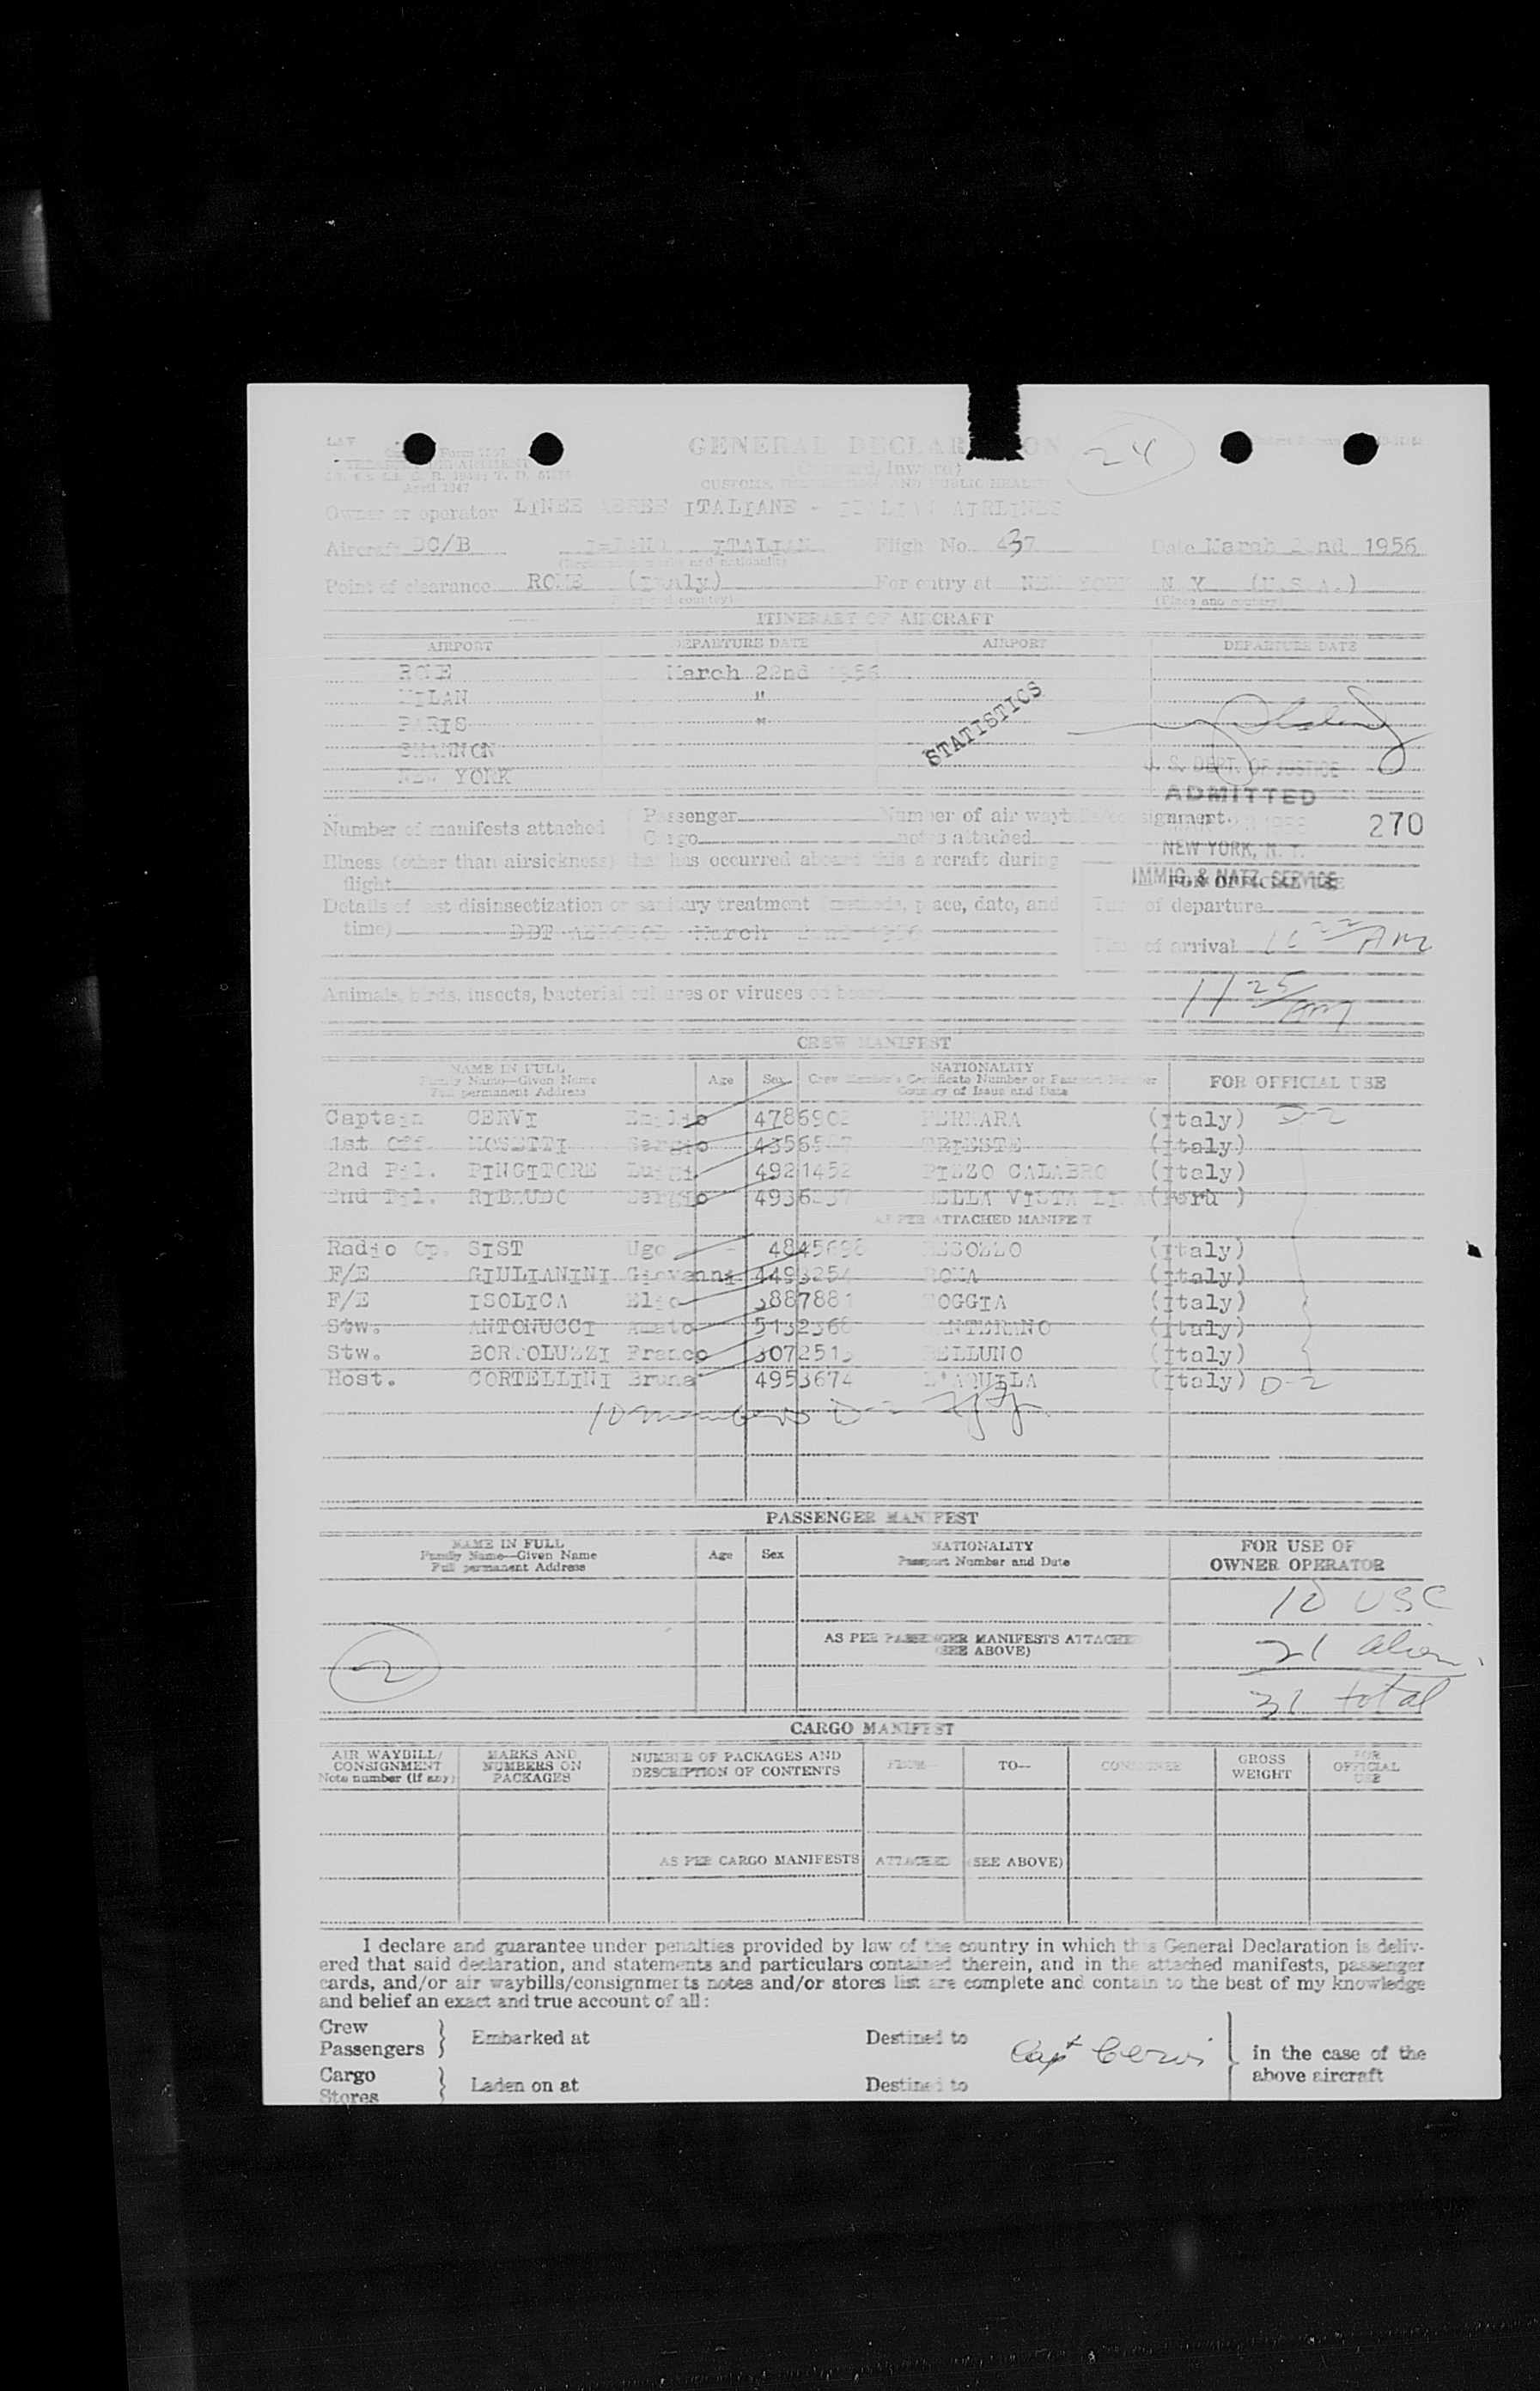 GENERAL DECLARATION
24
(Outward, Inward)
CUSTOMS, IMMIGRATION AND PUBLIC HEALTH
April 1947
Owner or operator LINEE AEREE ITALIANE - ITALIAN AIRLINES
Aircraft DC/B ITALIAN Fligh No. 437 Date March 22nd 1956
Point of clearance ROME (Italy) For entry at NEW YORK N.Y. (U.S.A.)
(Place and country) (Place and country)
ITINERARY OF AIRCRAFT
AIRPORT DEPARTURE DATE AIRPORT DEPARTURE DATE
ROME March 22nd 1956
MILAN "
PARIS "
SHANNON
NEW YORK
STATISTICS
U. S. DEPT. OF JUSTICE
ADMITTED
270
NEW YORK, N. Y.
IMMIG. & NATZ. SERVICE
Number of manifests attached Passenger Cargo Number of air waybills/consignment notes attached
Illness (other than airsickness) that has occurred aboard this aircraft during
flight
FOR OFFICIAL USE
Details of last disinsectization or sanitary treatment (methods, place, date, and
time) DDT AEROSOL March 22nd 1956
Time of departure
Time of arrival 11 22 AM
11 25 AM
Animals, birds, insects, bacterial cultures or viruses on board
CREW MANIFEST
NAME IN FULL Age Sex NATIONALITY FOR OFFICIAL USE
Family Name—Given Name Crew Member's Certificate Number or Passport Number
Full permanent Address Country of Issue and Date
Captain CERVI Emilio 4786902 FERRARA (Italy) D-2
1st Off. MOSETTI Sergio TRIESTE (Italy)
2nd Pil. PINGITORE Luigi 4921452 PIZZO CALABRO (Italy)
2nd Pil. RIBAUDO Sergio BELLA VISTA LIMA (Perù)
AS PER ATTACHED MANIFEST
Radio Op. SIST Ugo 4845698 (Italy)
F/E GIULIANINI Giovanni 4493254 ROMA (Italy)
F/E ISOLICA Elio 3887881 FOGGIA (Italy)
Stw. ANTONUCCI Amato 5132368 (Italy)
Stw. BORTOLUZZI Franco BELLUNO (Italy)
Host. CORTELLINI Bruna 4953674 L'AQUILA (Italy) D-2
10 members D-2
PASSENGER MANIFEST
NAME IN FULL Age Sex NATIONALITY FOR USE OF
Family Name—Given Name Passport Number and Date OWNER OPERATOR
Full permanent Address
10 USC
AS PER PASSENGER MANIFESTS ATTACHED
(SEE ABOVE)
21 alien
2
31 total
CARGO MANIFEST
AIR WAYBILL/ MARKS AND NUMBER OF PACKAGES AND FROM— TO— CONSIGNEE GROSS FOR
CONSIGNMENT NUMBERS ON DESCRIPTION OF CONTENTS WEIGHT OFFICIAL
Note number (if any) PACKAGES USE
AS PER CARGO MANIFESTS ATTACHED (SEE ABOVE)
I declare and guarantee under penalties provided by law of the country in which this General Declaration is deliv-
ered that said declaration, and statements and particulars contained therein, and in the attached manifests, passenger
cards, and/or air waybills/consignments notes and/or stores list are complete and contain to the best of my knowledge
and belief an exact and true account of all:
Crew
Passengers } Embarked at Destined to
Capt Cervi
in the case of the
above aircraft
Cargo
Stores } Laden on at Destined to